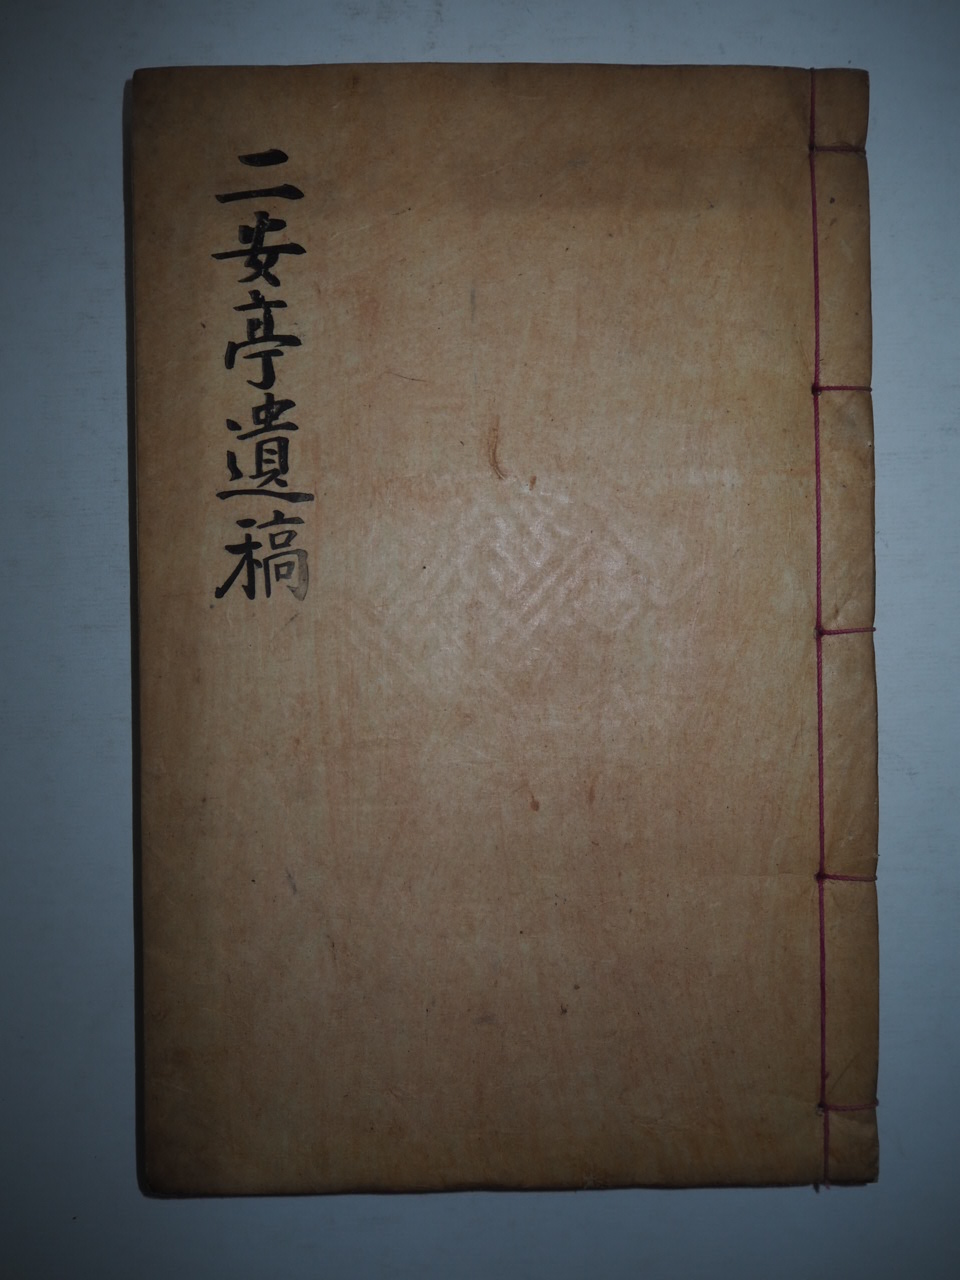 二安亭遺稿